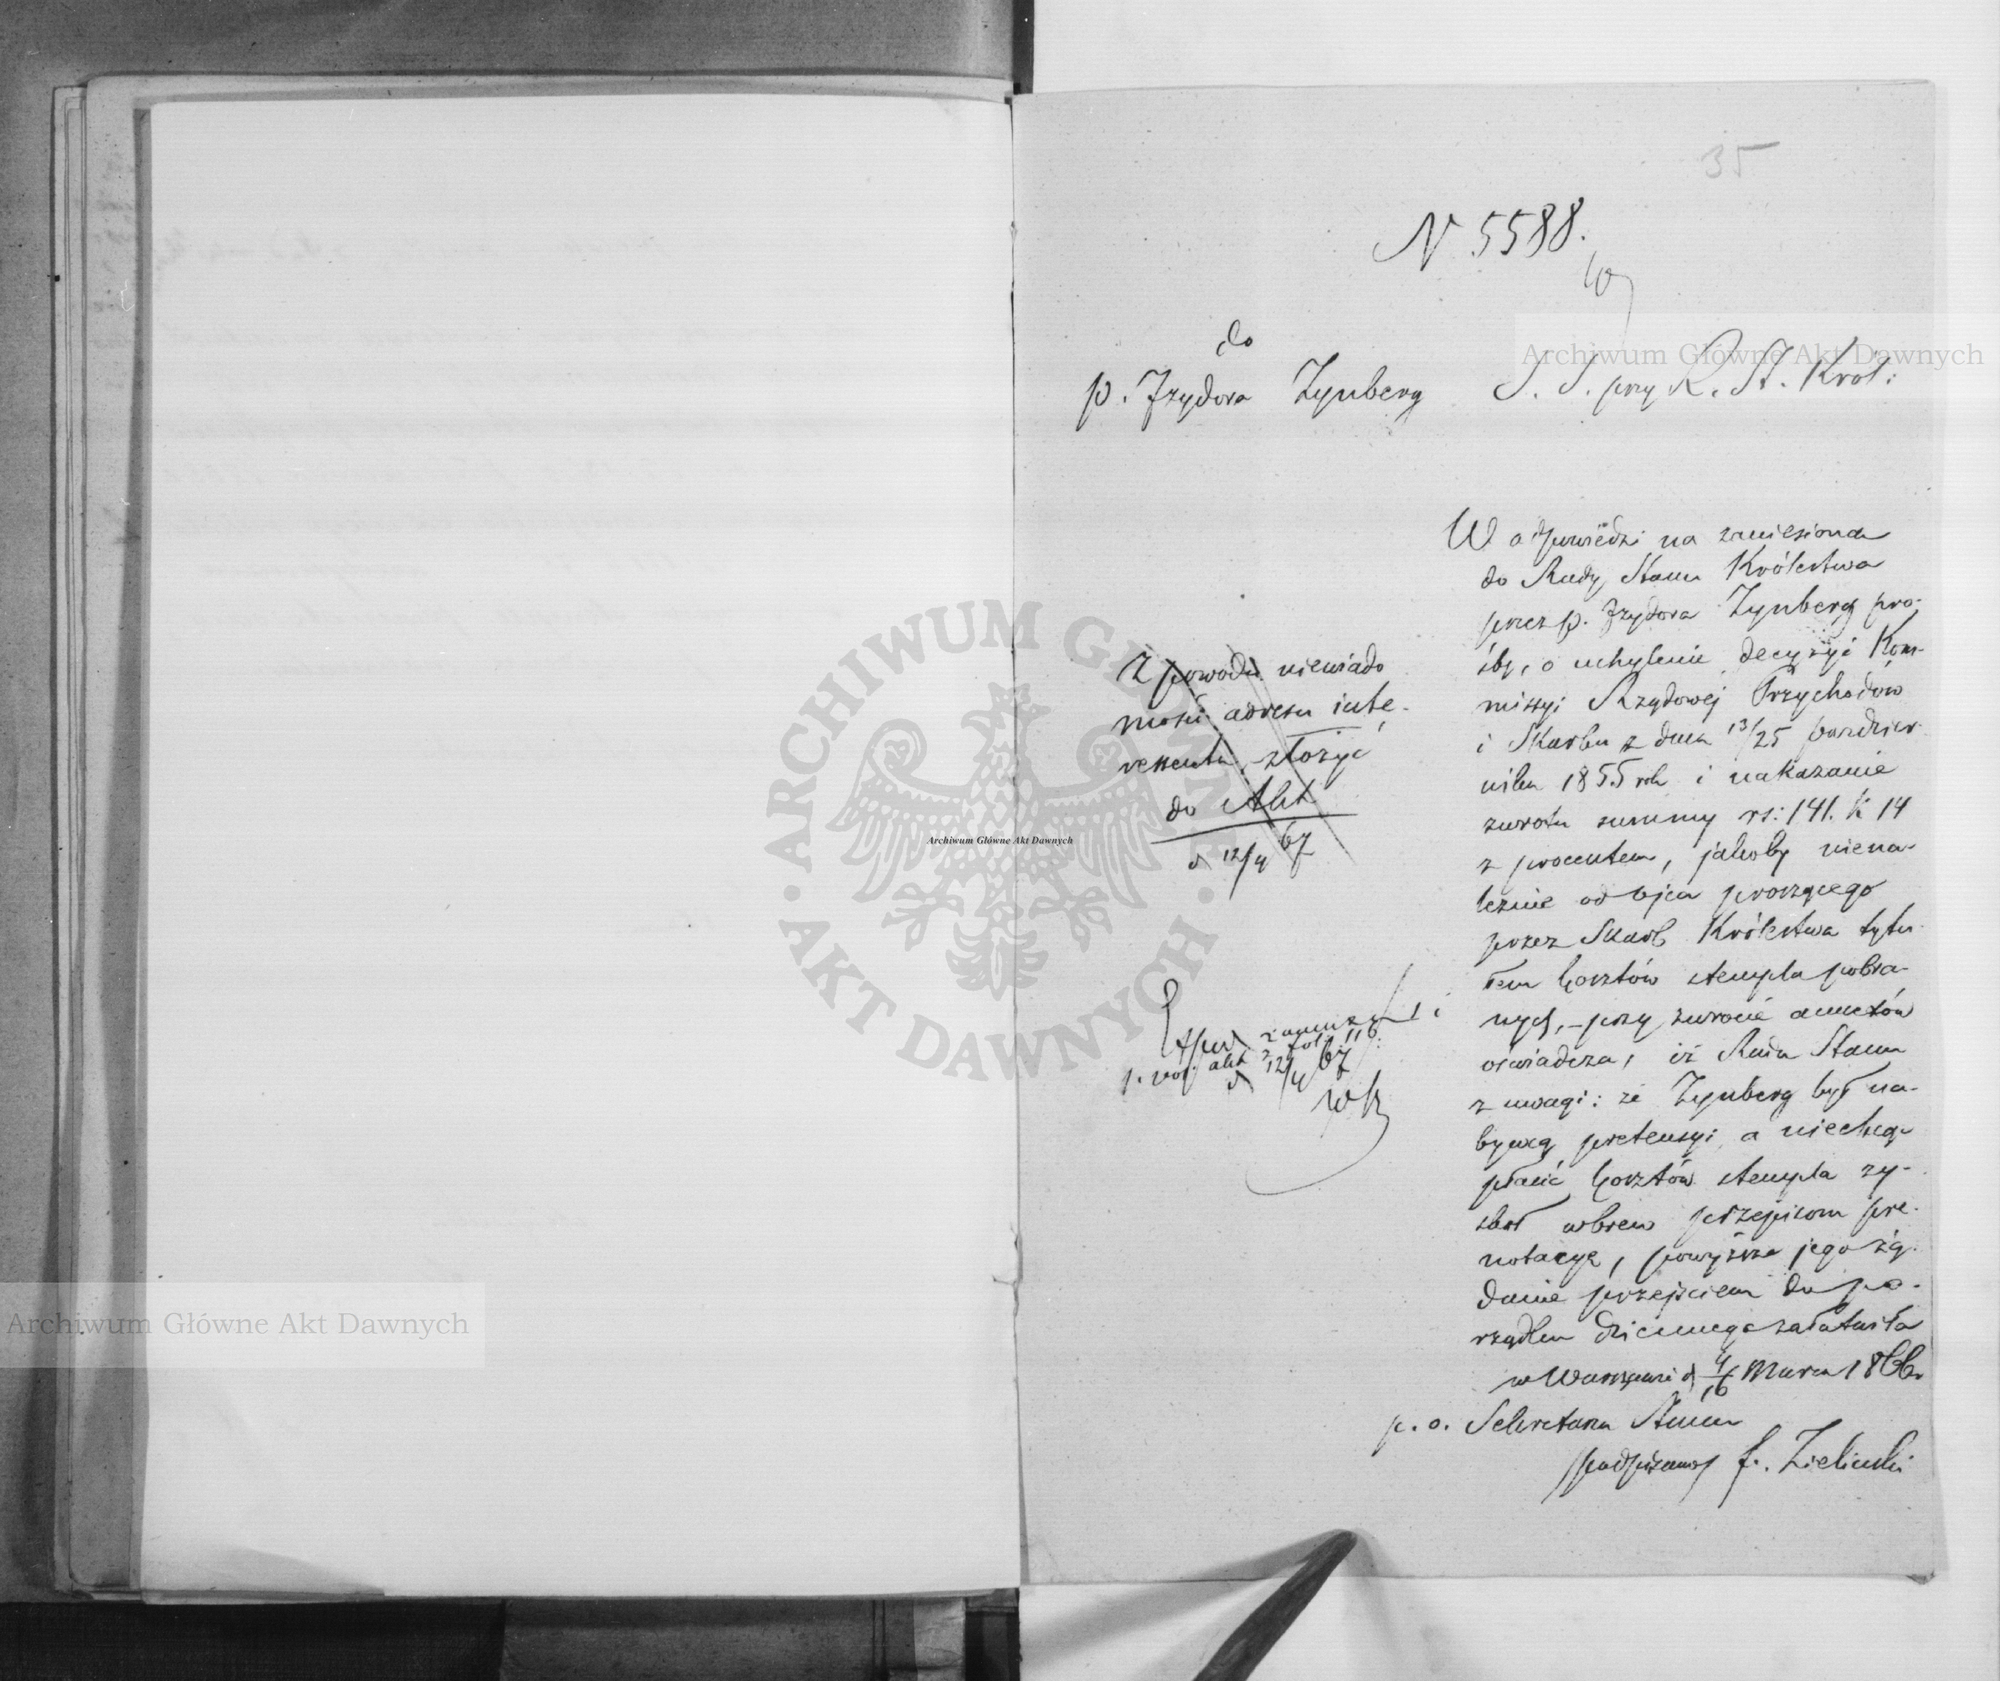 35
N 5588.
do
p. Jzydora Zynberg
S. S. przy R. St. Król:
W odpowiedzi na zaniesioną
do Rady Stanu Królestwa
przez p. Jzydora Zynberg pro-
śbę, o uchylenie decyzyi Kom-
missyi Rządowej Przychodów
i Skarbu z dnia 13/25 paździer
nika 1855 rok i nakazanie
zwrotu summy rs: 141. k 14
z procentem, jakoby niena-
leżnie od ojca proszącego
przez Skarb Królestwa tytu-
łem kosztów stempla pobra-
nych, – przy zwrocie annexów
oświadcza, iż Rada Stanu
z uwagi: że Zynberg był na-
bywcą pretensyi, a niechcąc
płacić kosztów stempla zy-
skał wbrew przepisom pre-
notacyę, powyższe jego żą-
danie przejściem do po-
rządku dziennego załatwiła
w Warszawie d 4/16 Marca 1866 r
p. o. Sekretarza Stanu
/podpisano/ J. Zieliński
Z powodu niewiado
mości adresu inte-
ressenta, złożyć
do Akt
d 12/4 67
d 12/4 67
Archiwum Główne Akt Dawnych
Archiwum Główne Akt Dawnych
Archiwum Główne Akt Dawnych
ARCHIWUM GŁÓWNE
AKT DAWNYCH